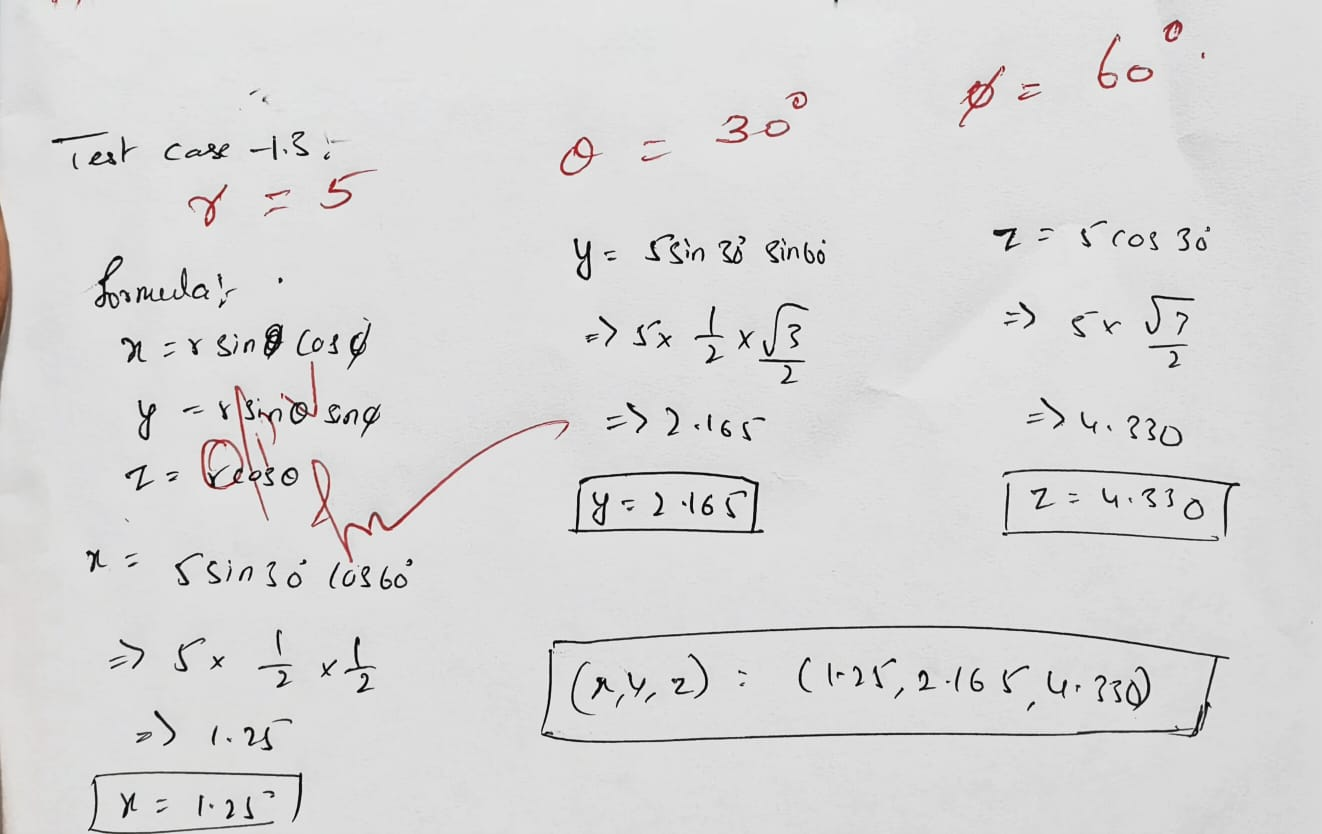 Test case -1.3 :-
r = 5
θ = 30°
ϕ = 60°.
formula :-
x = r sin θ cos ϕ
y = r sin θ sin ϕ
z = r cos θ
x = 5 sin 30° cos 60°
=> 5 x 1/2 x 1/2
=> 1.25
x = 1.25
y = 5 sin 30° sin 60°
=> 5 x 1/2 x √3/2
=> 2.165
y = 2.165
z = 5 cos 30°
=> 5 x √3/2
=> 4.330
z = 4.330
(x, y, z) = (1.25, 2.165, 4.330)